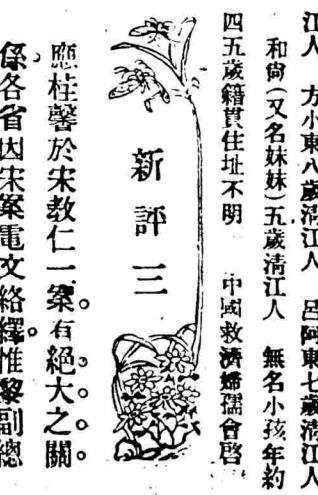 江人　方小東八歲清江人　呂阿東七歲清江人
和尙（又名妹妹）五歲清江人　無名小孩年約
四五歲籍貫住址不明　中國救濟婦孺會啓
新評三
應桂馨於宋敎仁一案。有絕大之關
係。各省因宋案電文絡繹。惟黎副總